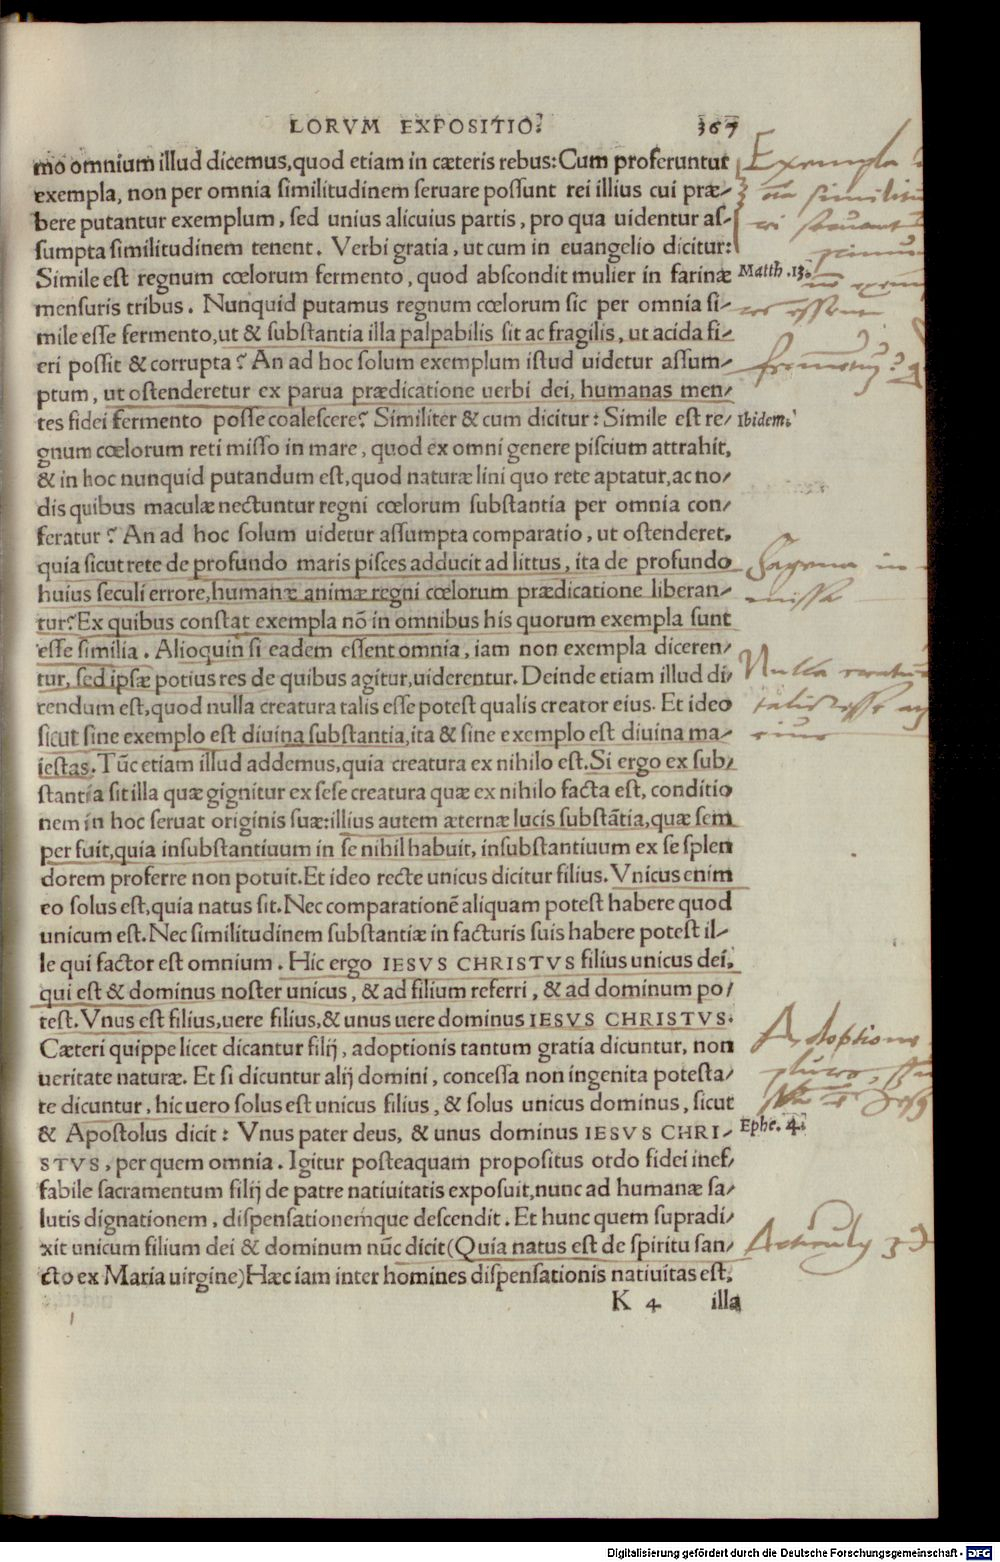 LORVM EXPOSITIO. 367
mo omnium illud dicemus, quod etiam in cæteris rebus: Cum proferuntur
exempla, non per omnia similitudinem seruare possunt rei illius cui præ-
bere putantur exemplum, sed unius alicuius partis, pro qua uidentur as-
sumpta similitudinem tenent. Verbi gratia, ut cum in euangelio dicitur:
Simile est regnum cœlorum fermento, quod abscondit mulier in farinæ
mensuris tribus. Nunquid putamus regnum cœlorum sic per omnia si-
mile esse fermento, ut & substantia illa palpabilis sit ac fragilis, ut acida fi-
eri possit & corrupta? An ad hoc solum exemplum istud uidetur assum-
ptum, ut ostenderetur ex parua prædicatione uerbi dei, humanas men-
tes fidei fermento posse coalescere? Similiter & cum dicitur: Simile est re-
gnum cœlorum reti misso in mare, quod ex omni genere piscium attrahit,
& in hoc nunquid putandum est, quod naturæ lini quo rete aptatur, ac no-
dis quibus maculæ nectuntur regni cœlorum substantia per omnia con-
feratur? An ad hoc solum uidetur assumpta comparatio, ut ostenderet,
quia sicut rete de profundo maris pisces adducit ad littus, ita de profundo
huius seculi errore, humanæ animæ regni cœlorum prædicatione liberan-
tur? Ex quibus constat exempla nō in omnibus his quorum exempla sunt
esse similia. Alioquin si eadem essent omnia, iam non exempla diceren-
tur, sed ipsæ potius res de quibus agitur, uiderentur. Deinde etiam illud di
cendum est, quod nulla creatura talis esse potest qualis creator eius. Et ideo
sicut sine exemplo est diuina substantia, ita & sine exemplo est diuina ma-
iestas. Tūc etiam illud addemus, quia creatura ex nihilo est. Si ergo ex sub-
stantia sit illa quæ gignitur ex sese creatura quæ ex nihilo facta est, conditio
nem in hoc seruat originis suæ: illius autem æternæ lucis substātia, quæ sem
per fuit, quia insubstantiuum in se nihil habuit, insubstantiuum ex se splen
dorem proferre non potuit. Et ideo recte unicus dicitur filius. Vnicus enim
eo solus est, quia natus sit. Nec comparationē aliquam potest habere quod
unicum est. Nec similitudinem substantiæ in facturis suis habere potest il-
le qui factor est omnium. Hic ergo IESVS CHRISTVS filius unicus dei,
qui est & dominus noster unicus, & ad filium referri, & ad dominum po-
test. Vnus est filius, uere filius, & unus uere dominus IESVS CHRISTVS.
Cæteri quippe licet dicantur filij, adoptionis tantum gratia dicuntur, non
ueritate naturæ. Et si dicuntur alij domini, concessa non ingenita potesta-
te dicuntur, hic uero solus est unicus filius, & solus unicus dominus, sicut
& Apostolus dicit: Vnus pater deus, & unus dominus IESVS CHRI-
STVS, per quem omnia. Igitur posteaquam propositus ordo fidei inef-
fabile sacramentum filij de patre natiuitatis exposuit, nunc ad humanæ sa-
lutis dignationem, dispensationemque descendit. Et hunc quem supradi-
xit unicum filium dei & dominum nūc dicit (Quia natus est de spiritu san-
cto ex Maria uirgine) Hæc iam inter homines dispensationis natiuitas est,
K 4 illa
Exempla
similitu
Matth. 13.
Ibidem.
Sagena in
missa
Nulla creatur
talis esse
eius
Adoptione
Ephe. 4.
Digitalisierung gefördert durch die Deutsche Forschungsgemeinschaft - DFG